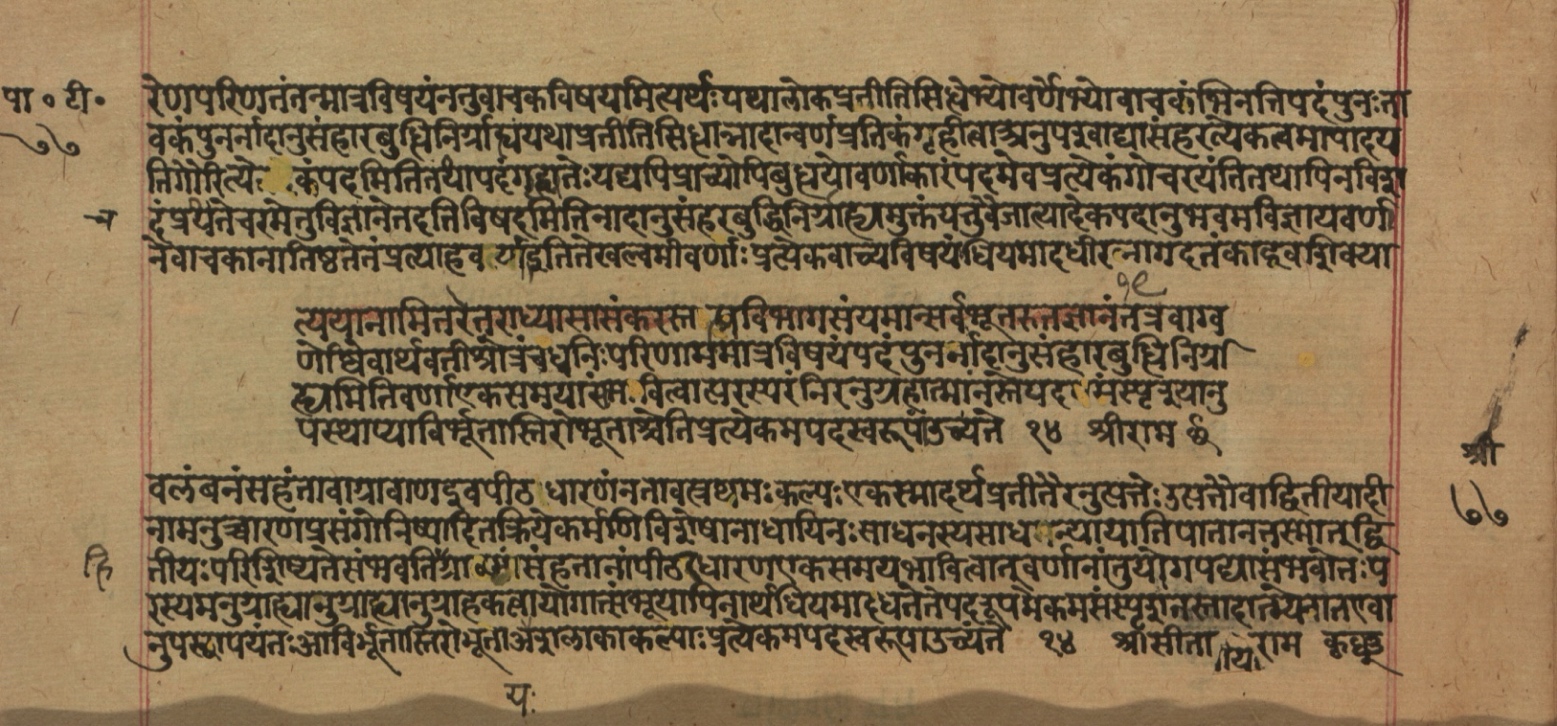 पा॰टी॰
७७
रेणपरिणतंतन्मात्रविषयंनतुवाचकविषयमित्यर्थः यथालोकप्रतीतिसिद्धेभ्योवर्णेभ्योवाचकंभिनत्तिपदंपुनःना
वकंपुनर्नादानुसंहारबुद्धिनिर्ग्राह्यंयथाप्रतीतिसिद्धान्नादान्वर्णप्रतिकंगृहीत्वाअनुपश्चाद्यासंहरत्येकत्वमापादय
तिगौरित्ये कंपदमितितयापदंगृह्यतेःयद्यपिप्राच्योपिबुद्धयोवर्णाकारंपदमेवप्रत्येकंगोचरयंतितथापिनविश
दंप्रथतेचरमेतुविज्ञानेतदतिविषदमितिनादानुसंहरबुद्धिनिर्ग्राह्यमुक्तंयत्तुवैजात्यादेकपदानुभवमविज्ञायवर्णा
नेवाचकानातिष्ठतेतंप्रत्याह
खल्वमीवर्णाः प्रत्येकवाच्यविषयंधियमादधीरन्नागदंतकाइवशिक्या
त्ययानामितरेतराध्यासासंकरस्त प्रविभागसंयमान्सर्वभूतरुतज्ञानंतत्रवाग्व
र्णेष्वेवार्थवतीश्रोत्रंचध्वनिःपरिणाममात्रविषयंपदंपुनर्नादानुसंहारबुद्धिनिर्ग्रा
ह्यमितिवर्णाएकसमयासंभ वित्वात्परस्परंनिरनुग्रहात्मानस्तेपदमसंस्पृश्यानु
पस्थाप्याविर्भूतास्तिरोभूताश्चेतिप्रत्येकमपदस्वरूपाउच्यंते १४ श्रीराम
वलंबनंसहंतावाग्रावाणइवपीठ धारणंनतावत्प्रथमःकल्पःएकस्मादर्थप्रतीतेरनुत्पत्तेःउत्पत्तौवाद्वितीयादी
नामनुच्चारणप्रसंगोनिष्पादितक्रियेकर्मणिविशेषानाधायिनःसाधनस्यसाध नन्यायातिपातानत्तस्मातद्वि
तीयःपरिशिष्यतेसंभवतिग्राव्णांसंहतानांपीठधारणएकसमयभावित्वात्वर्णानांतुयोगपद्यासंभवोतःप
रस्यमनुग्राह्यानुग्राहकत्वायोगात्संभूयापिनार्थधियमादधतेतेपदरूपमेकमसंस्पृशंतस्तादात्म्येनातएवा
नुपस्थापयंतःआविर्भूतास्तिरोभूताअयःशलाकाकल्पाःप्रत्येकमपदस्वरूपाउच्यंते १४ श्रीसीता राम
श्री
७७
यः